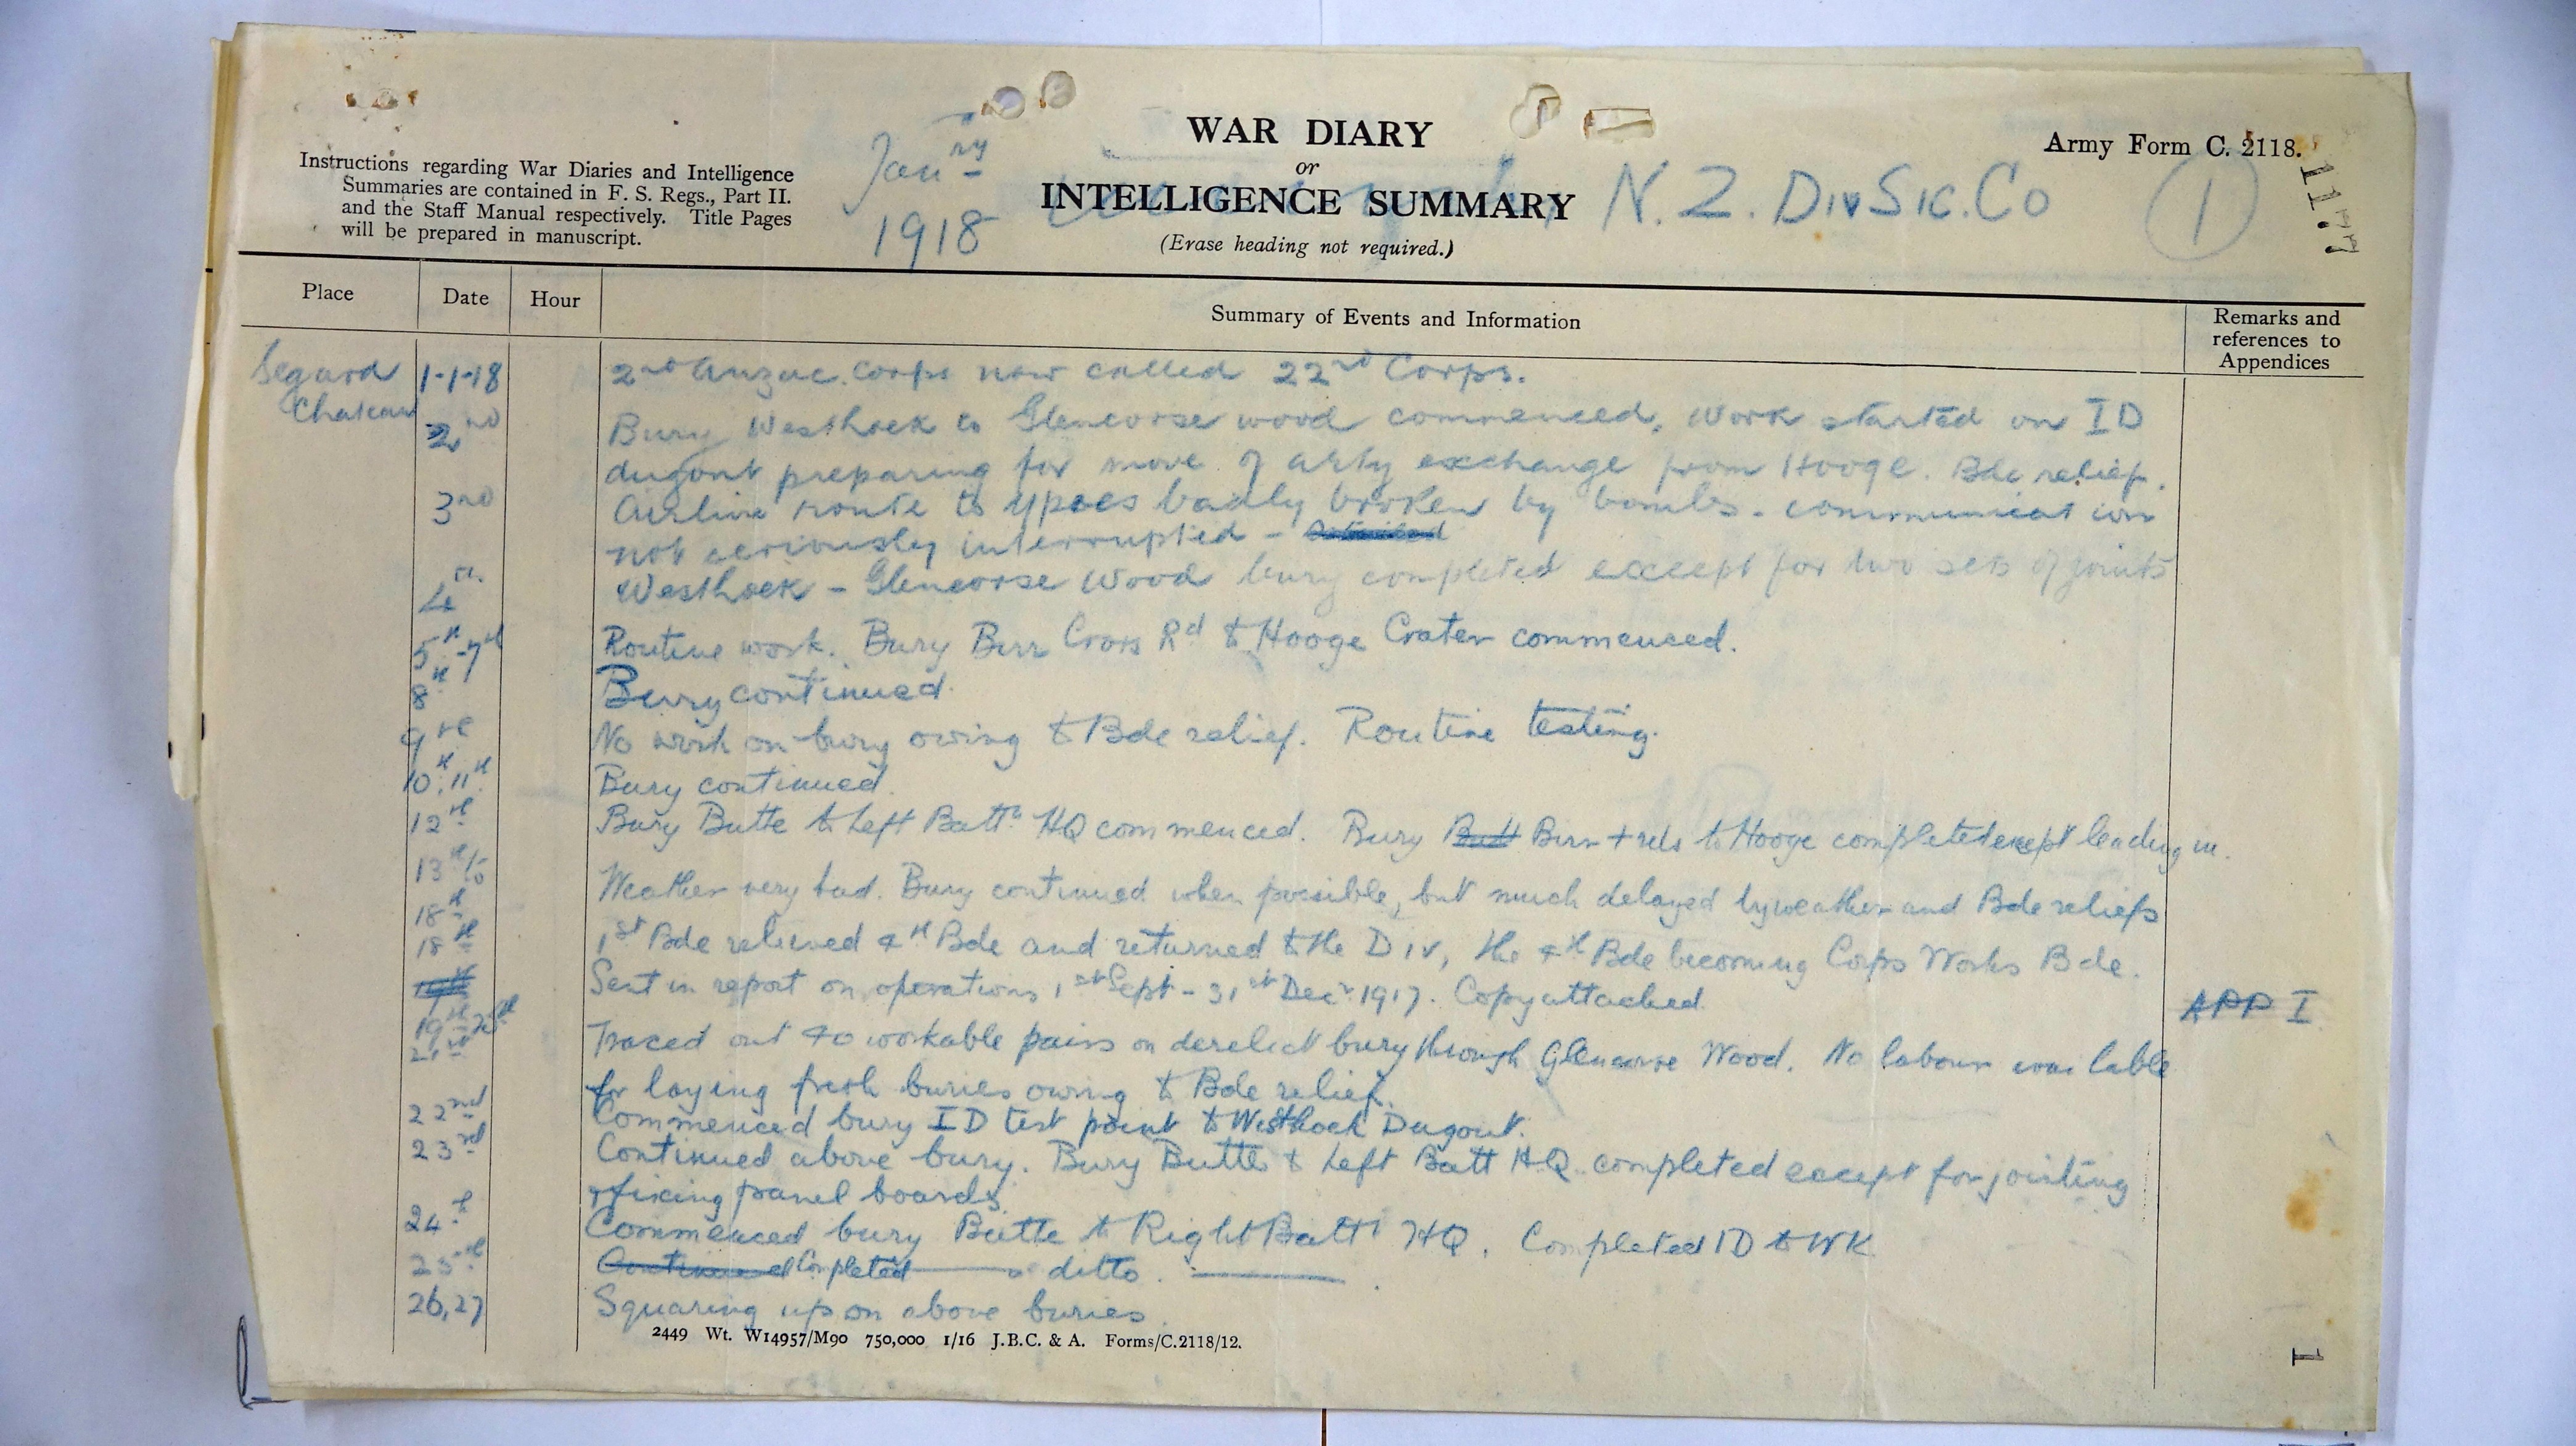 WAR DIARY
or
INTELLIGENCE SUMMARY
(Erase heading not required.)
Army Form C. 2118.
Instructions regarding War Diaries and Intelligence
Summaries are contained in F. S. Regs., Part II.
and the Staff Manual respectively. Title Pages
will be prepared in manuscript.
Jan ry
1918
N. Z. Div Sig. Co
1
Place Date Hour Summary of Events and Information Remarks and references to Appendices
Segard Chateau 1-1-18 2nd Anzac Corps now called 22nd Corps.
2nd Bury Westhoek to Glencorse wood commenced. Work started on ID
dugout preparing for move of arty exchange from Hooge. Bde relief.
3rd Airline route to Ypres badly broken by bombs - communication
not seriously interrupted -
4th Westhoek - Glencorse Wood bury completed except for two sets of joints
5th-7th Routine work. Bury Birr Cross Rd to Hooge Crater commenced.
8th Bury continued.
9th No work on bury owing to Bde relief. Routine testing.
10th. 11th. Bury continued.
12th Bury Butte to Left Battn HQ commenced. Bury Butt Birr + rds to Hooge completed except leading in.
13th to
18th Weather very bad. Bury continued when possible, but much delayed by weather and Bde reliefs
18th 1st Bde relieved 4th Bde and returned to the Div, the 4th Bde becoming Corps Works Bde.
19th Sent in report on operations 1st Sept - 31st Decr 1917. Copy attached. APP I
19th
21st Traced out 40 workable pairs on derelict bury through Glencorse Wood. No labour available
for laying fresh buries owing to Bde relief.
22nd Commenced bury ID test point to Westhoek Dugout.
23rd Continued above bury. Bury Butte to Left Batt HQ completed except for jointing
+ fixing panel boards.
24th Commenced bury Butte to Right Battn HQ. Completed ID to WK
25th Continued Completed ditto.
26,27 Squaring up on above buries.
2449 Wt. W14957/M90 750,000 1/16 J.B.C. & A. Forms/C.2118/12.
1